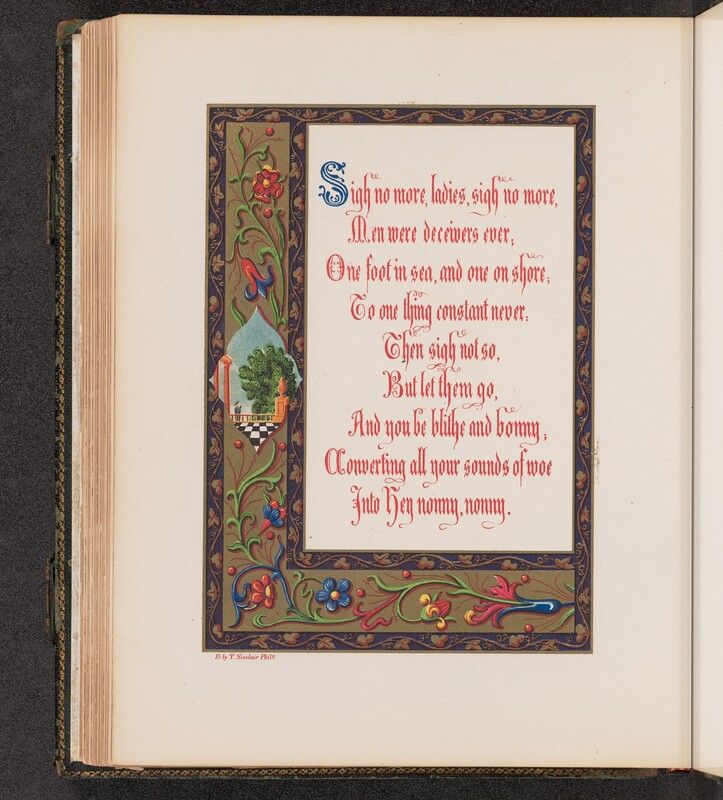 Sigh no more, ladies, sigh no more,
Men were deceivers ever;
One foot in sea, and one on shore;
To one thing constant never:
Then sigh not so,
But let them go,
And you be blithe and bonny;
Converting all your sounds of woe
Into Hey nonny, nonny.
by T. Sinclair Phila